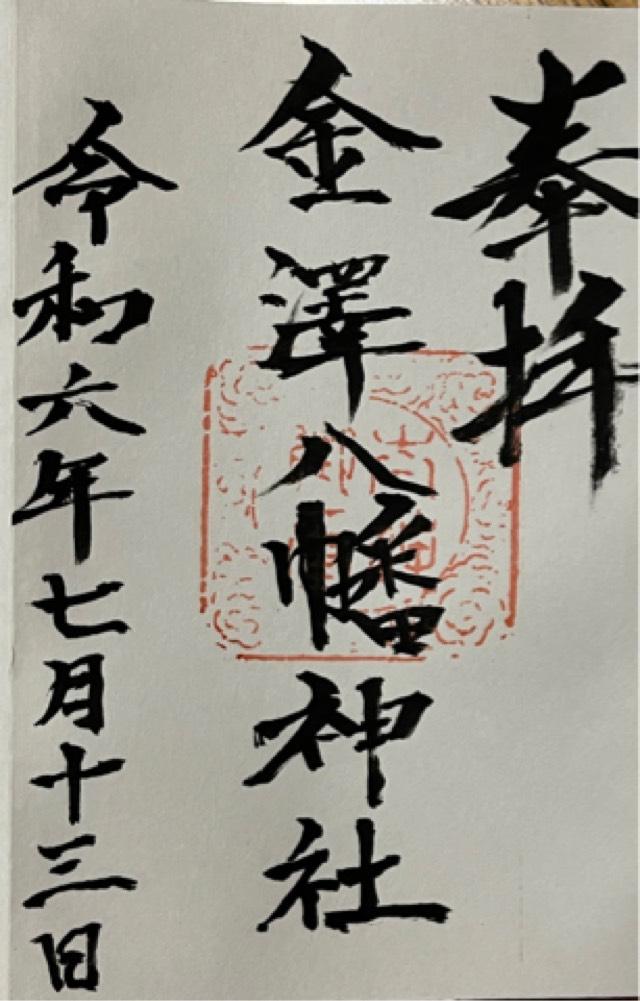 奉拝
金澤八幡神社
令和六年七月十三日